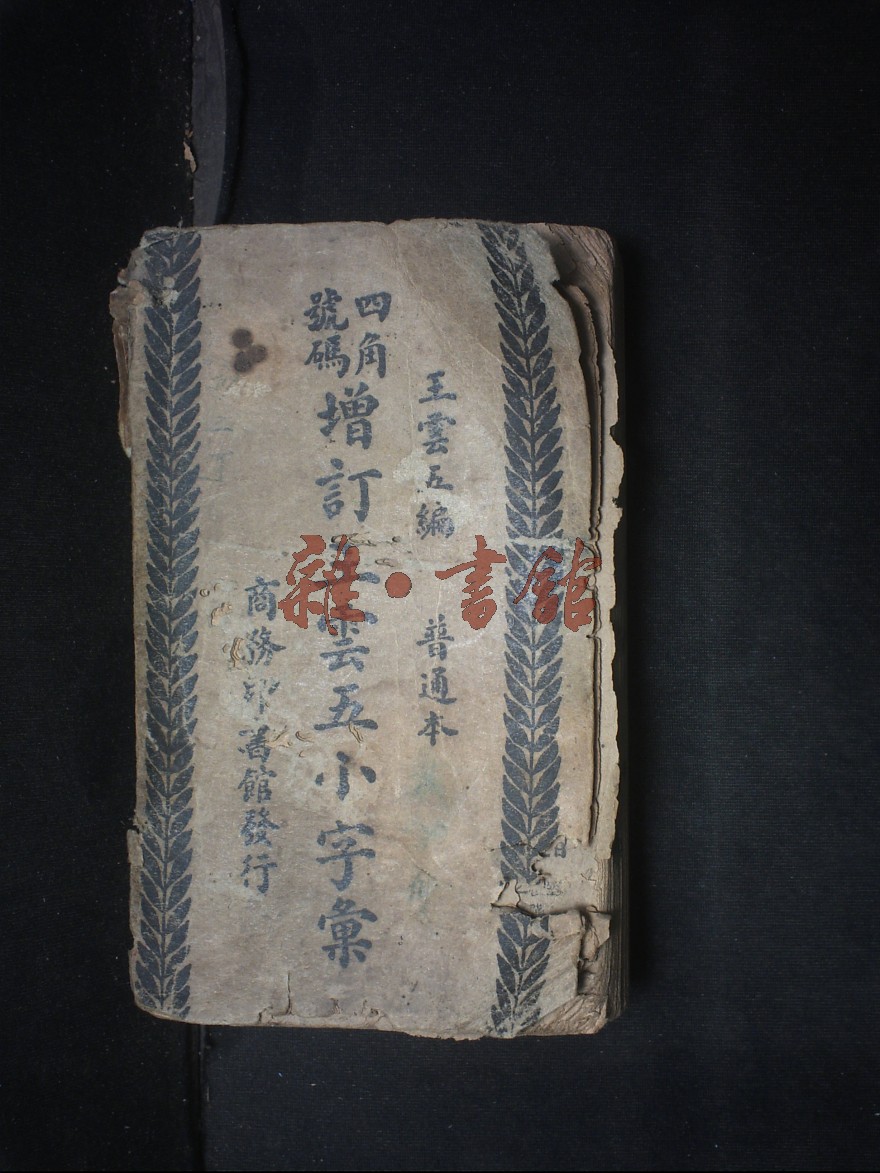 王雲五編 普通本
四角號碼增訂王雲五小字彙
商務印書館發行
雜·書館